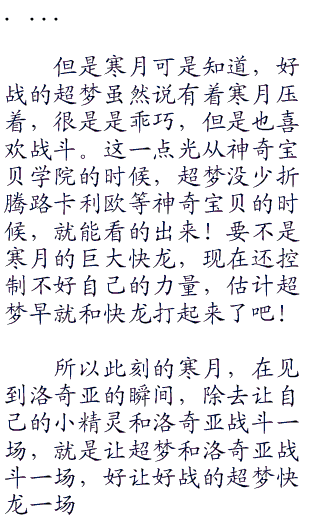 . ...
但是寒月可是知道，好
战的超梦虽然说有着寒月压
着，很是是乖巧，但是也喜
欢战斗。这一点光从神奇宝
贝学院的时候，超梦没少折
腾路卡利欧等神奇宝贝的时
候，就能看的出来！要不是
寒月的巨大快龙，现在还控
制不好自己的力量，估计超
梦早就和快龙打起来了吧！
所以此刻的寒月，在见
到洛奇亚的瞬间，除去让自
己的小精灵和洛奇亚战斗一
场，就是让超梦和洛奇亚战
斗一场，好让好战的超梦快
龙一场